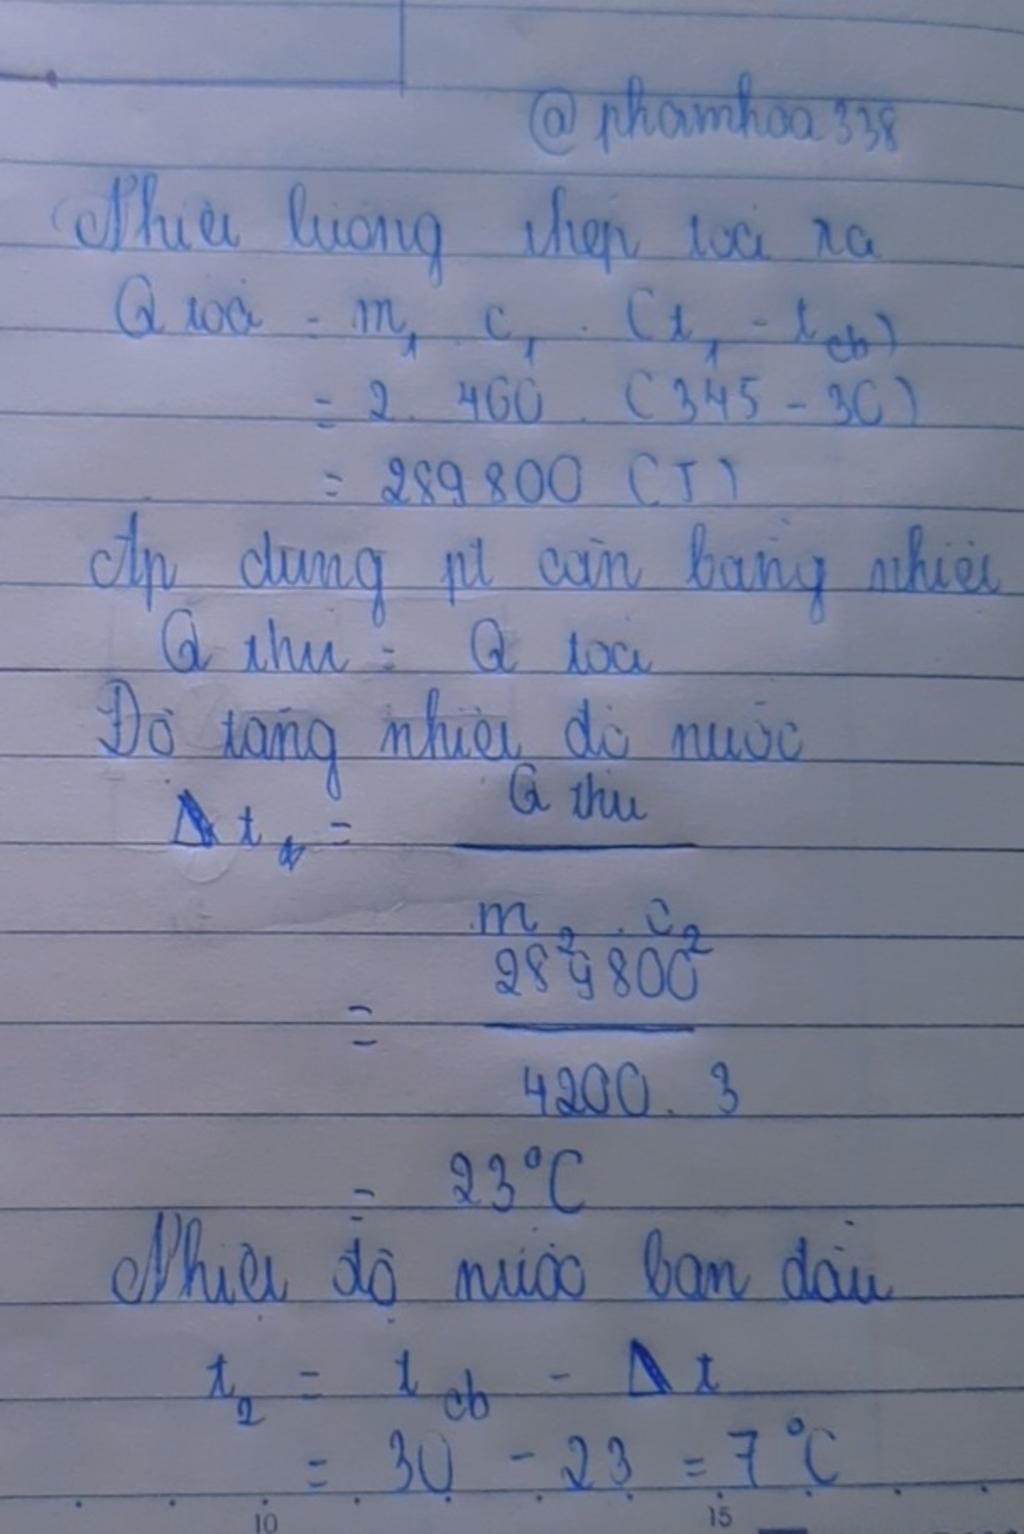 @phamhoa338
Nhiệt lượng thép toả ra
Q toả = m₁ c₁ . (t₁ - t cb)
= 2. 460 . (345 - 30)
= 289800 (J)
Áp dụng pt cân bằng nhiệt
Q thu = Q toả
Độ tăng nhiệt độ nước
Δt = Q thu
m₂ . c₂
= 289800
4200 . 3
= 23°C
Nhiệt độ nước ban đầu
t₂ = t cb - Δt
= 30 - 23 = 7°C
10 15